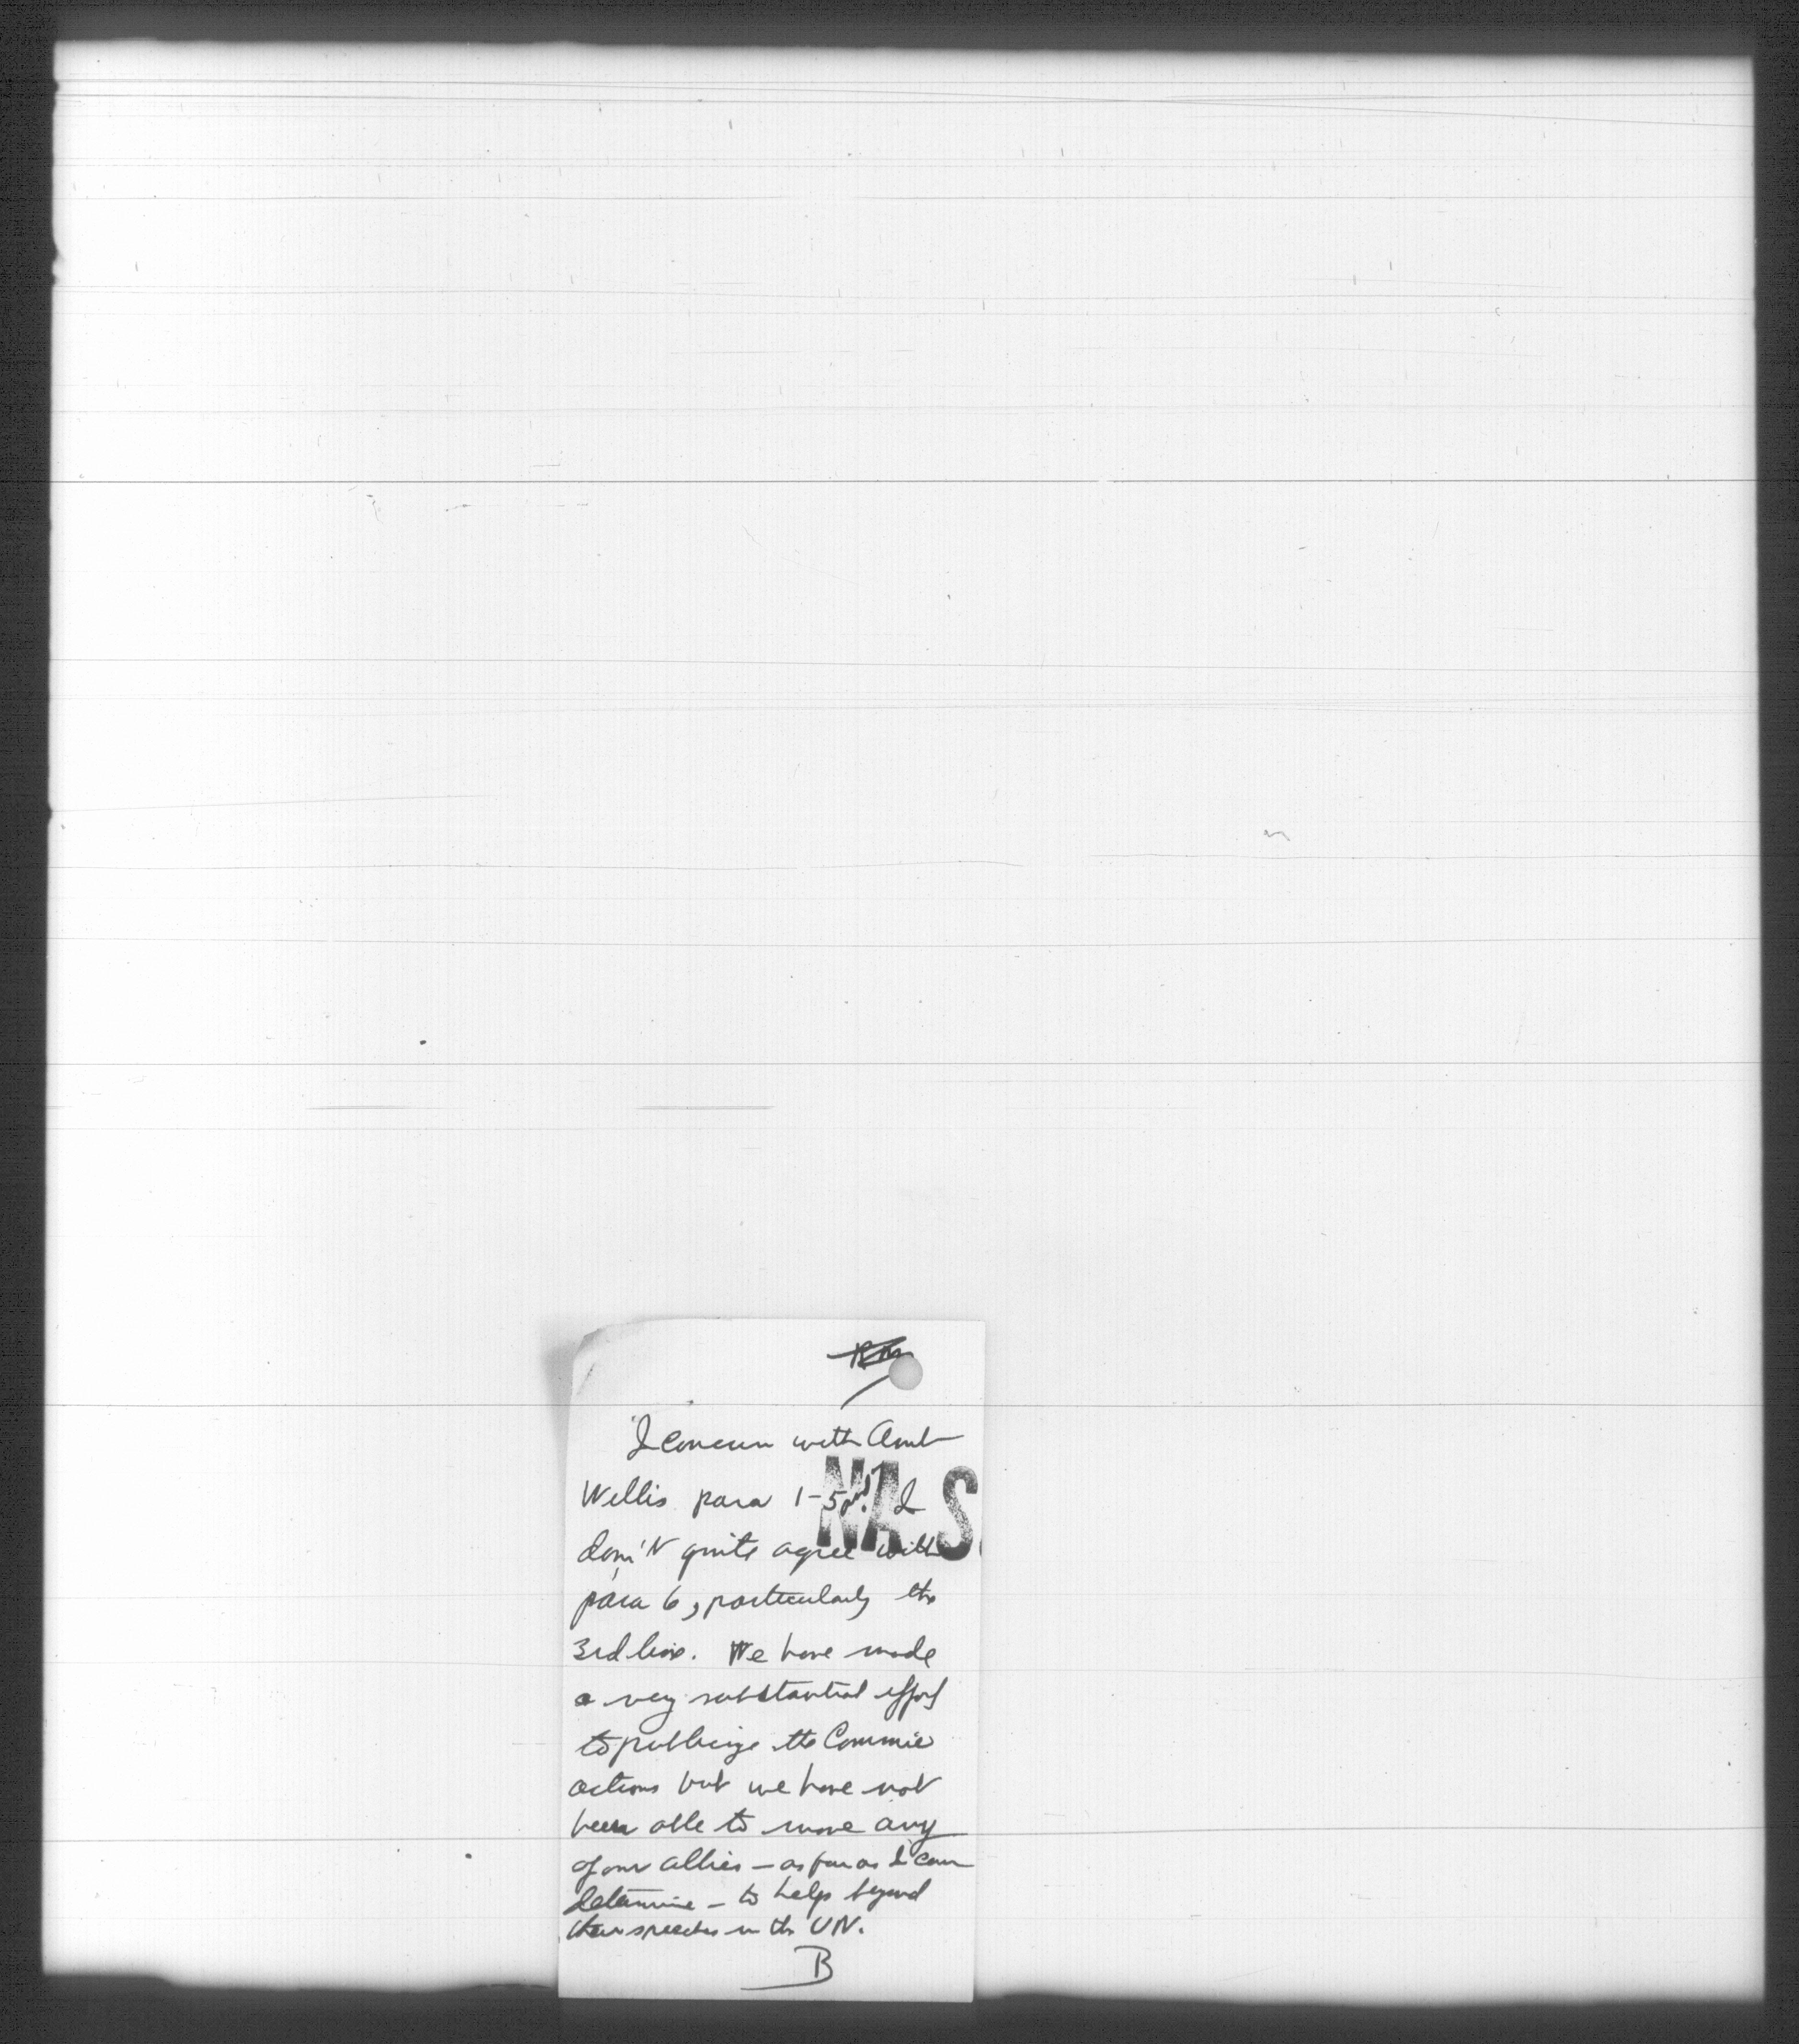 I concur with Amb
Willis para 1-5, I
don't quite agree with
para 6, particularly the
3rd line. We have made
a very substantial effort
to publicize the Commie
actions but we have not
been able to move any
of our allies – as far as I can
determine – to help beyond
their speeches in the UN.
B